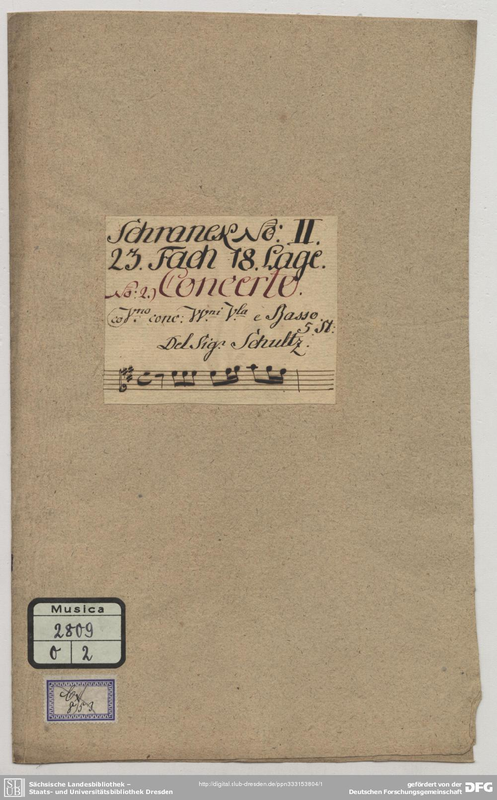 Schranck No: II.
23. Fach 18. Lage.
No: 2.) Concerto.
co Vno conc: VVni Vla e Basso.
5 St:
Del Sigr Schultz.
Musica
2809
O 2
Sächsische Landesbibliothek –
Staats- und Universitätsbibliothek Dresden
http://digital.slub-dresden.de/ppn333153604/1
gefördert von der
Deutschen Forschungsgemeinschaft DFG
SLUB